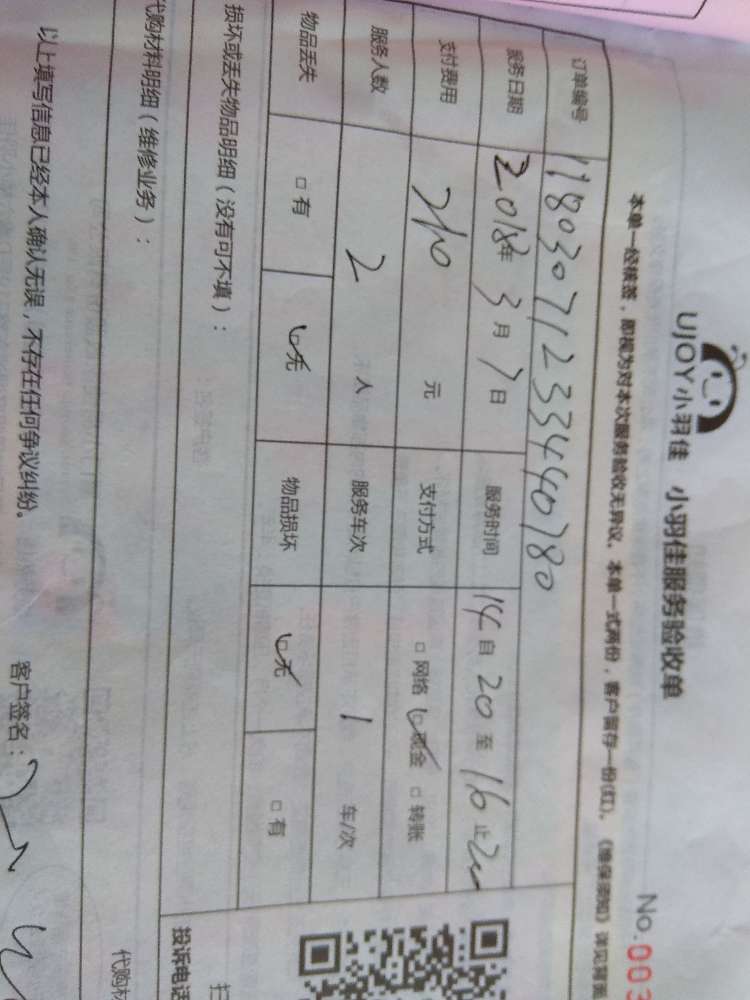 UJOY小羽佳 小羽佳服务验收单
No.003
本单一经核签，即视为对本次服务验收无异议。本单一式两份，客户留存一份(红)。《维保须知》详见背面
订单编号 1180307123344 0780
服务日期 2018年3月7日 服务时间 14自20至16止20
支付费用 240元 支付方式 □网络 ☑现金 □转账
服务人数 2人 服务车次 1 车/次
物品丢失 □有 ☑无 物品损坏 ☑无 □有
损坏或丢失物品明细（没有可不填）：
投诉电话
代购材料明细（维修业务）：
代购材
以上填写信息已经本人确认无误，不存在任何争议纠纷。 客户签名：